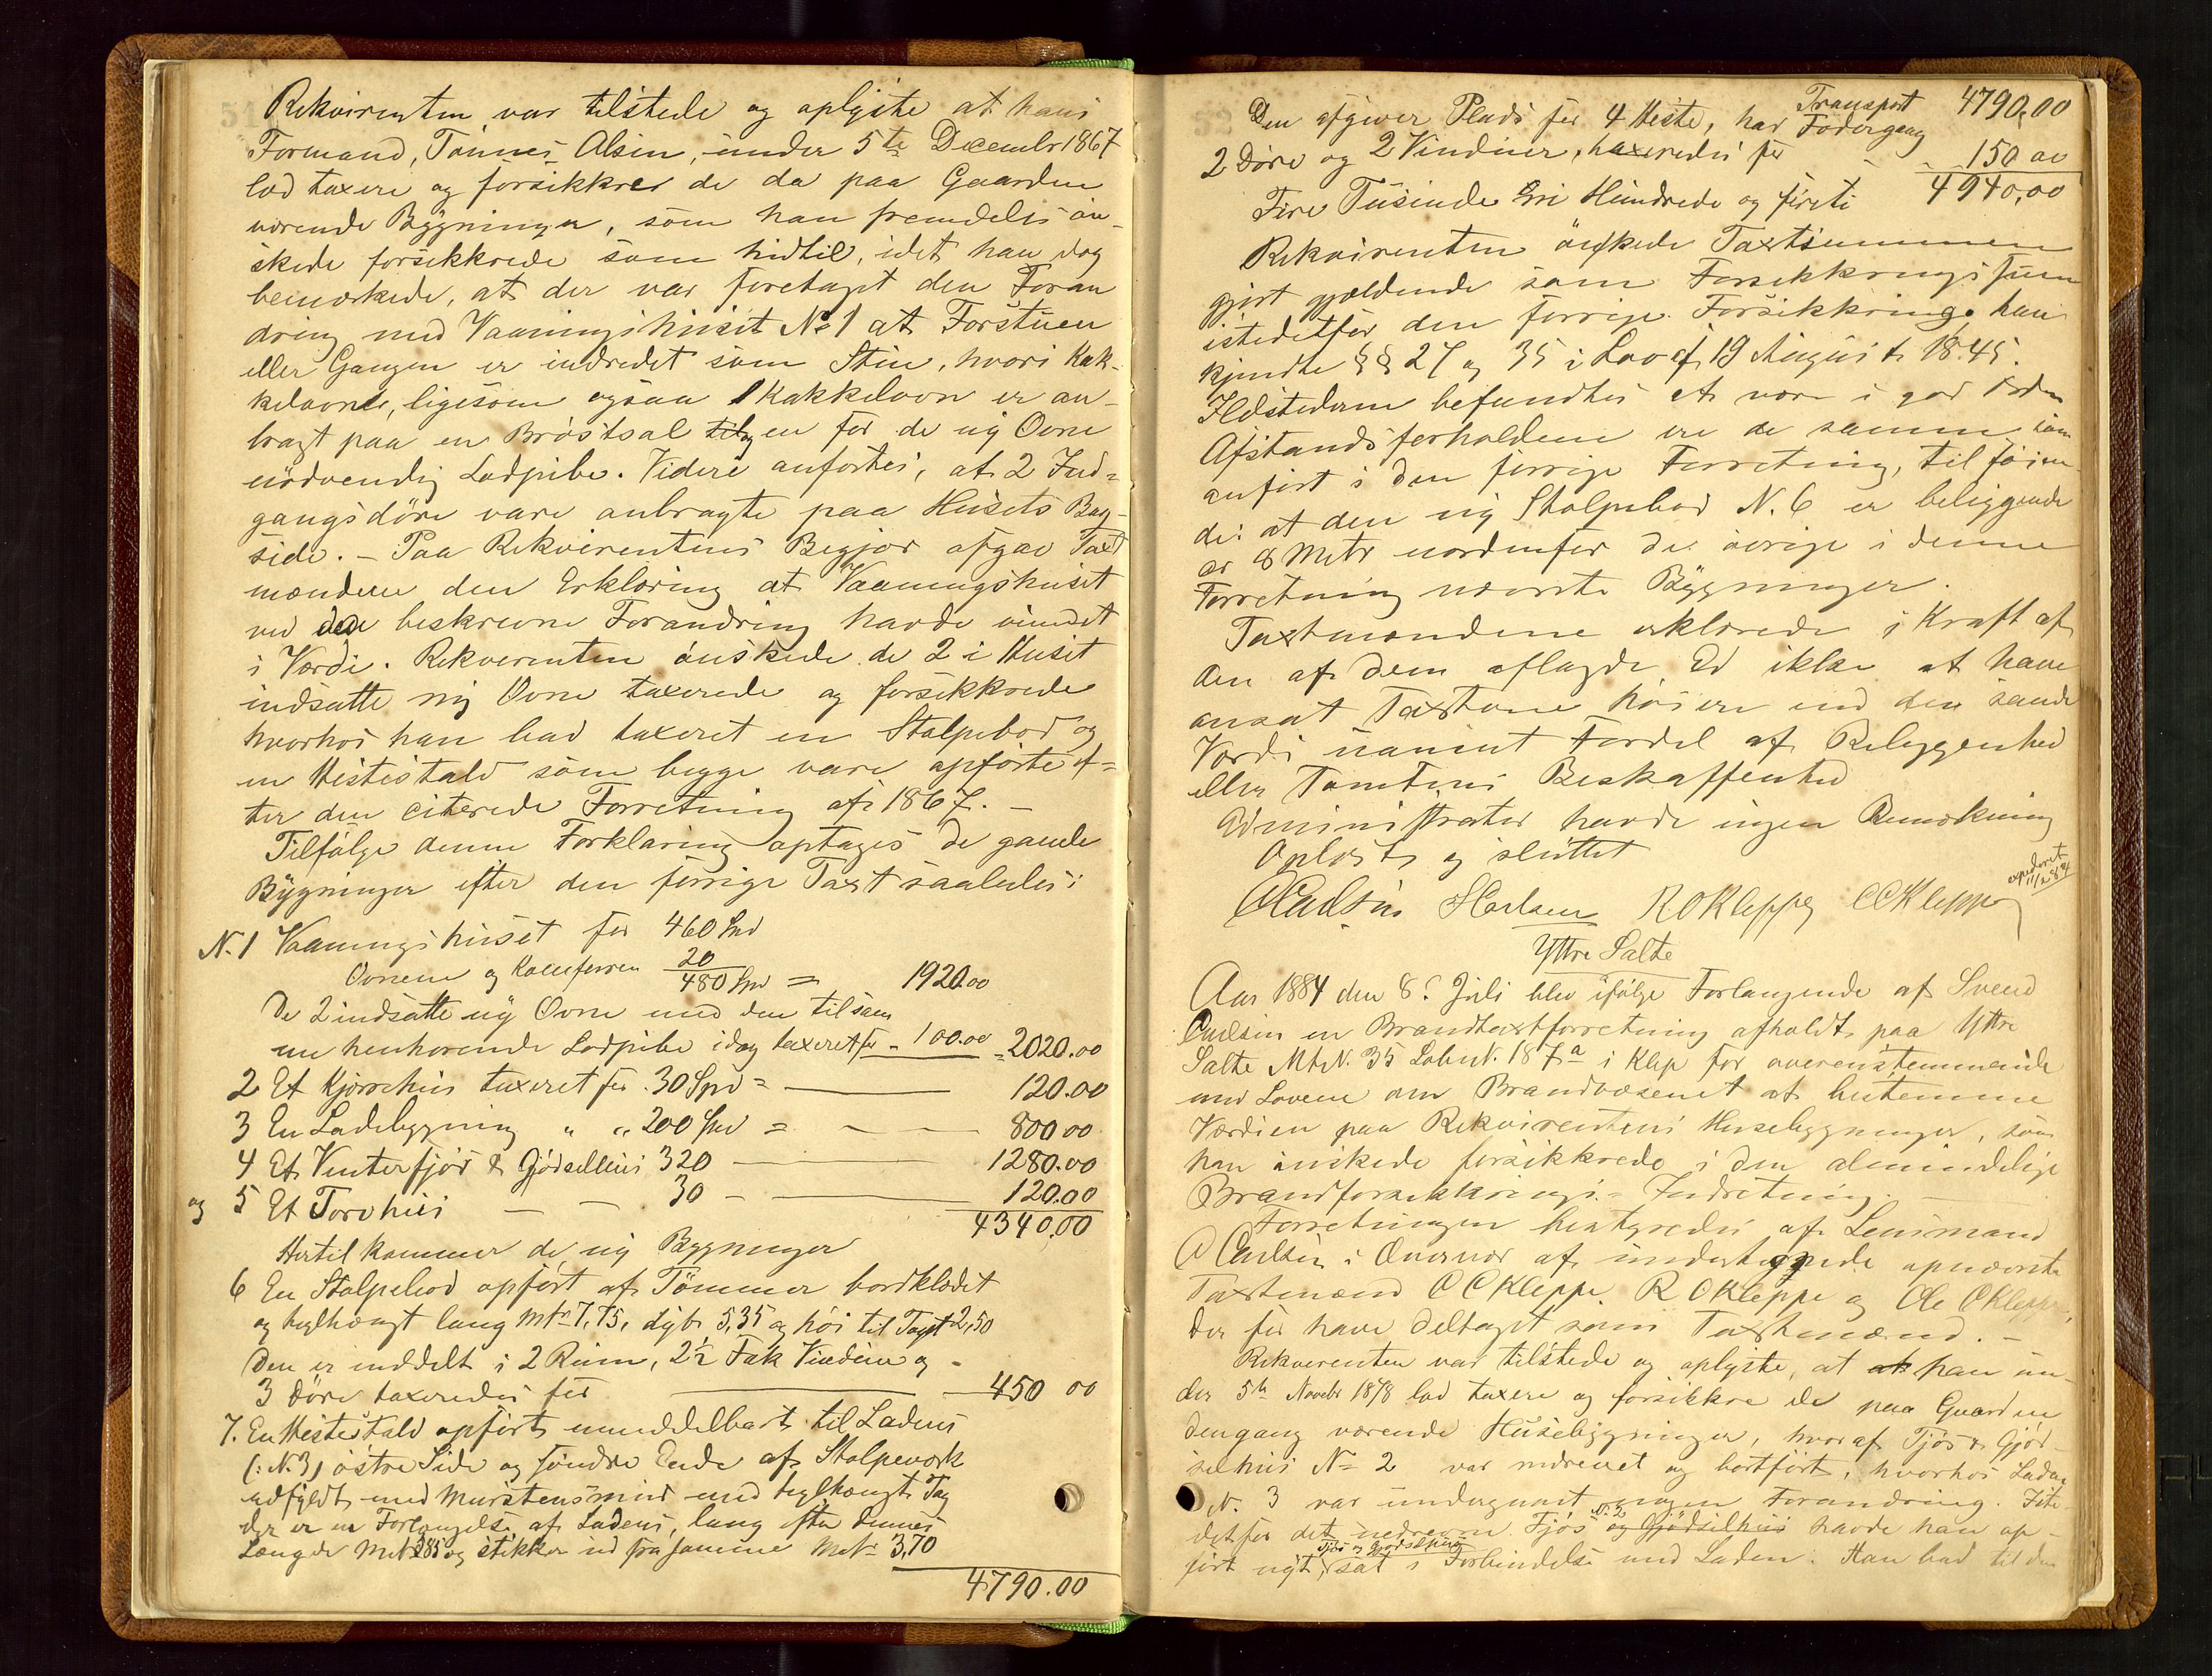 Rekvirenten var tilstede og oplyste at hans
Formand, Tønnes Olsen, under 5te Decembr 1867
lod taxere og forsikkrer de da paa Gaarden
værende Bygninger, som han fremdeles øn-
skede forsikkrede som hidtil, idet han dog
bemærkede, at der var foretaget den Foran
dring med Vaaningshuset No 1 at Forstuen
eller Gangen er indredet som Stue, hvori Kak-
kelovne, ligesom ogsaa 1 Kakkelovn er an-
bragt paa en Brøstsal og en for de ny Ovne
nødvendig Ladpibe. Videre anførtes, at 2 Ind-
gangsdøre vare anbragte paa Husets Bag-
side. - Paa Rekvirentens Begjær afgav Taxt
mændene den Erklæring at Vaaningshuset
ved den beskrevne Forandring havde vundet
i Værdi. Rekvirenten ønskede de 2 i Huset
indsatte ny Ovne taxerede og forsikkrede
hvorhos han bad taxeret en Stolpebod og
en Hestestald som begge vare opførte ef-
ter den citerede Forretning af 1867. -
Tilfølge denne Forklaring optages de gamle
Bygninger efter den forrige Taxt saaledes:
N. 1 Vaaningshuset for 460 Spd
Ovnene og 20
480 Spd = 1920.00
De 2 indsatte ny Ovne med den tilsam
men henhørende Ladpibe idag taxeret for - 100.00 = 2020.00
2 Et Kjørrehus taxeret for 30 Spd = 120.00
3 En Ladebygning " " 200 Spd = 800 00
4 Et Vinterfjøs & Gjødselhus 320 — 1280.00
og 5 Et Torvhus — — 30 — 120.00
4340.00
Hertil kommer de ny Bygninger
6 En Stolpebod opført af Tømmer bordklædet
og teglhængt lang Mtr 7,75, dyb 5,35 og høi til Taget 2,50
Den er inddelt i 2 Rum, 2½ Fak Vinduer og -
3 Døre taxeredes for — 450 00
7. En Hestestald opført umiddelbart til Ladens
(: N. 3) østre Side og søndre Ende af Stolpeværk
udfyldt med Murstensmur med teglhængt Tag
der er en Forlængelse af Ladens, lang efter dennes
Længde Metr 285 og stikker ud fra samme Metr 3,70
4790.00
Transport 4790.00
Den afgiver Plads for 4 Heste, har Fodergang
2 Døre og 2 Vinduer, taxeredes for - 150 00
4940,00
Fire Tusinde Ni Hundrede og firti
Rekvirenten ønskede Taxtsummen
gjort gjældende som Forsikkringssum
istedetfor den forrige Forsikkring. han
kjendte §§ 27 og 35 i Lov af 19 August 1845.
Ildstederne befandtes at være i god Orden
Afstandsforholdene ere de samme som
anført i den forrige Forretning, tilføien-
de: at den ny Stolpebod N. 6 er beliggende
8 Metr nordenfor de øvrige i denne
Forretning nævnte Bygninger.
Taxtmændene erklærede i Kraft af
den af dem aflagde Ed ikke at have
ansat Taxterne høiere end den sande
Værdi uanset Fordel af Beliggenhed
eller Tomtens Beskaffenhed
Administrator havde ingen Bemærkning
Oplæst og sluttet
OCarlsen R O Kleppe C C Kleppe
Yttre Salte
Aar 1884 den 8de Juli blev ifølge Forlangende af Svend
Carlsen en Brandtaxtforretning afholdt paa Yttre
Salte MtrN. 35 LøbeN. 187a i Klep for overenstemmende
med Lovene om Brandvæsenet at bestemme
Værdien paa Rekvirentens Husebygninger, som
han ønskede forsikkrede i den almindelige
Brandforsikkrings- Indretning. —
Forretningen bestyredes af Lensmand
O Carlsen i Overvær af undertegnede opnævnte
Taxtmænd C C Kleppe R O Kleppe og Ole O Kleppe,
der før have deltaget som Taxtmænd. -
Rekvirenten var tilstede og oplyste, at at han un-
der 5te Novebr 1878 lod taxere og forsikkre de paa Gaarden
dengang værende Husebygninger, hvoraf Fjøs & Gjød-
selhus No 2 var nedrevet og bortført, hvorhos Laden
N. 3 var undergaaet nogen Forandring. Iste-
detfor det nedrevne Fjøs N. 2 og Gjødselhus havde han op-
ført nyt Fjøs og Gjødselhus sat i Forbindelse med Laden. Han bad til den